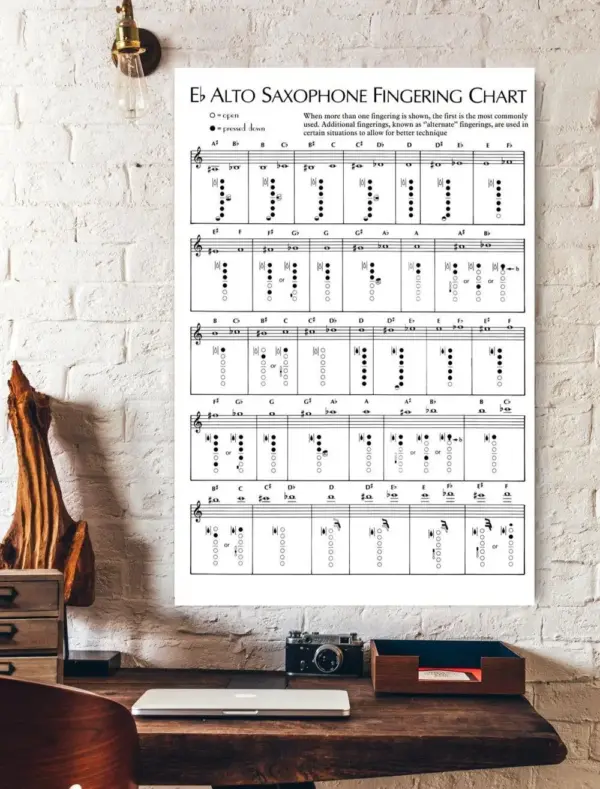 E♭ ALTO SAXOPHONE FINGERING CHART
○ = open
● = pressed down
When more than one fingering is shown, the first is the most commonly
used. Additional fingerings, known as “alternate” fingerings, are used in
certain situations to allow for better technique
A♯ B♭ B C♭ B♯ C C♯ D♭ D D♯ E♭ E F♭
E♯ F F♯ G♭ G G♯ A♭ A A♯ B♭
or or or b
B C♭ B♯ C C♯ D♭ D D♯ E♭ E F♭ E♯ F
or
F♯ G♭ G G♯ A♭ A A♯ B♭ B C♭
or or or b
B♯ C C♯ D♭ D D♯ E♭ E F♭ E♯ F
or or